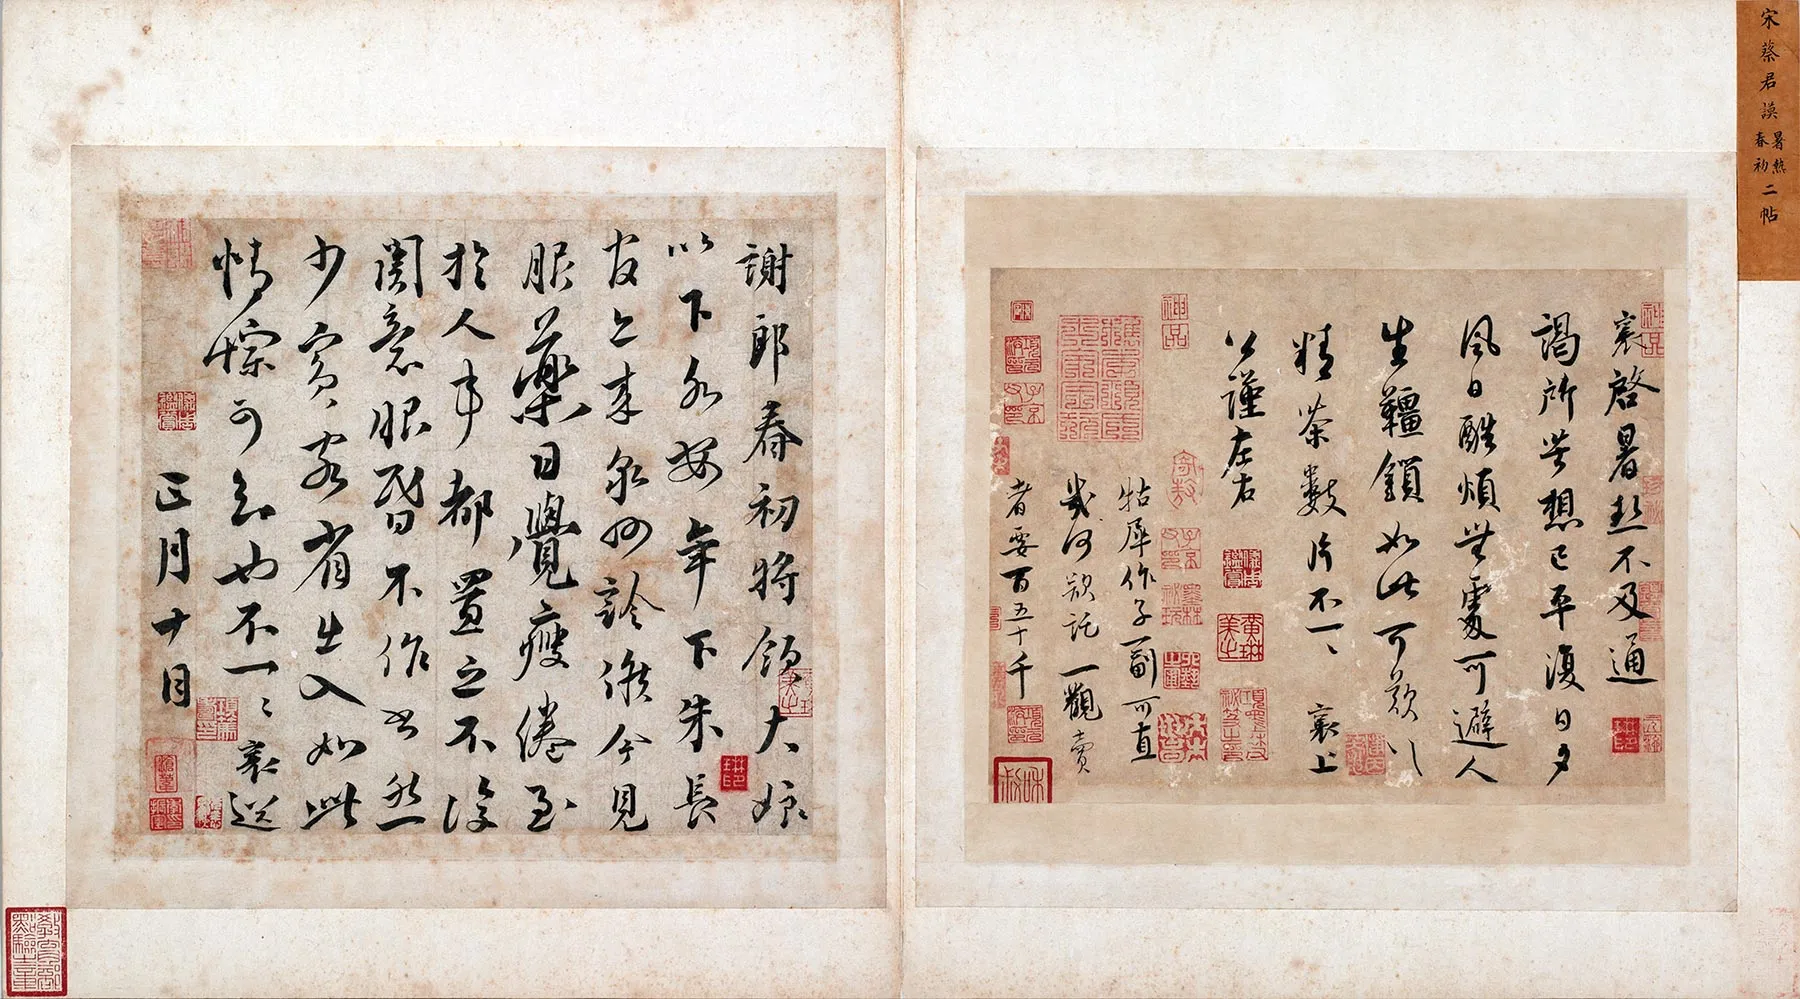 宋蔡君謨
暑熱
春初
二帖
襄啓暑熱不及通
謁所苦想已平復日夕
風日酷煩無處可避人
生韁鎖如此可歎〻
精茶數片不一〻 襄上
公謹左右
牯犀作子一副可直
幾何欲託一觀賣
者要百五十千
謝郎春初將領大娘
以下各安年下朱長
官亦來泉州診候今見
服藥日覺瘦倦至
於人事都置之不復
關意眼昏不作書然
少賓客省出入如此
情悰可知也不一〻 襄送
正月十日
神品
神品